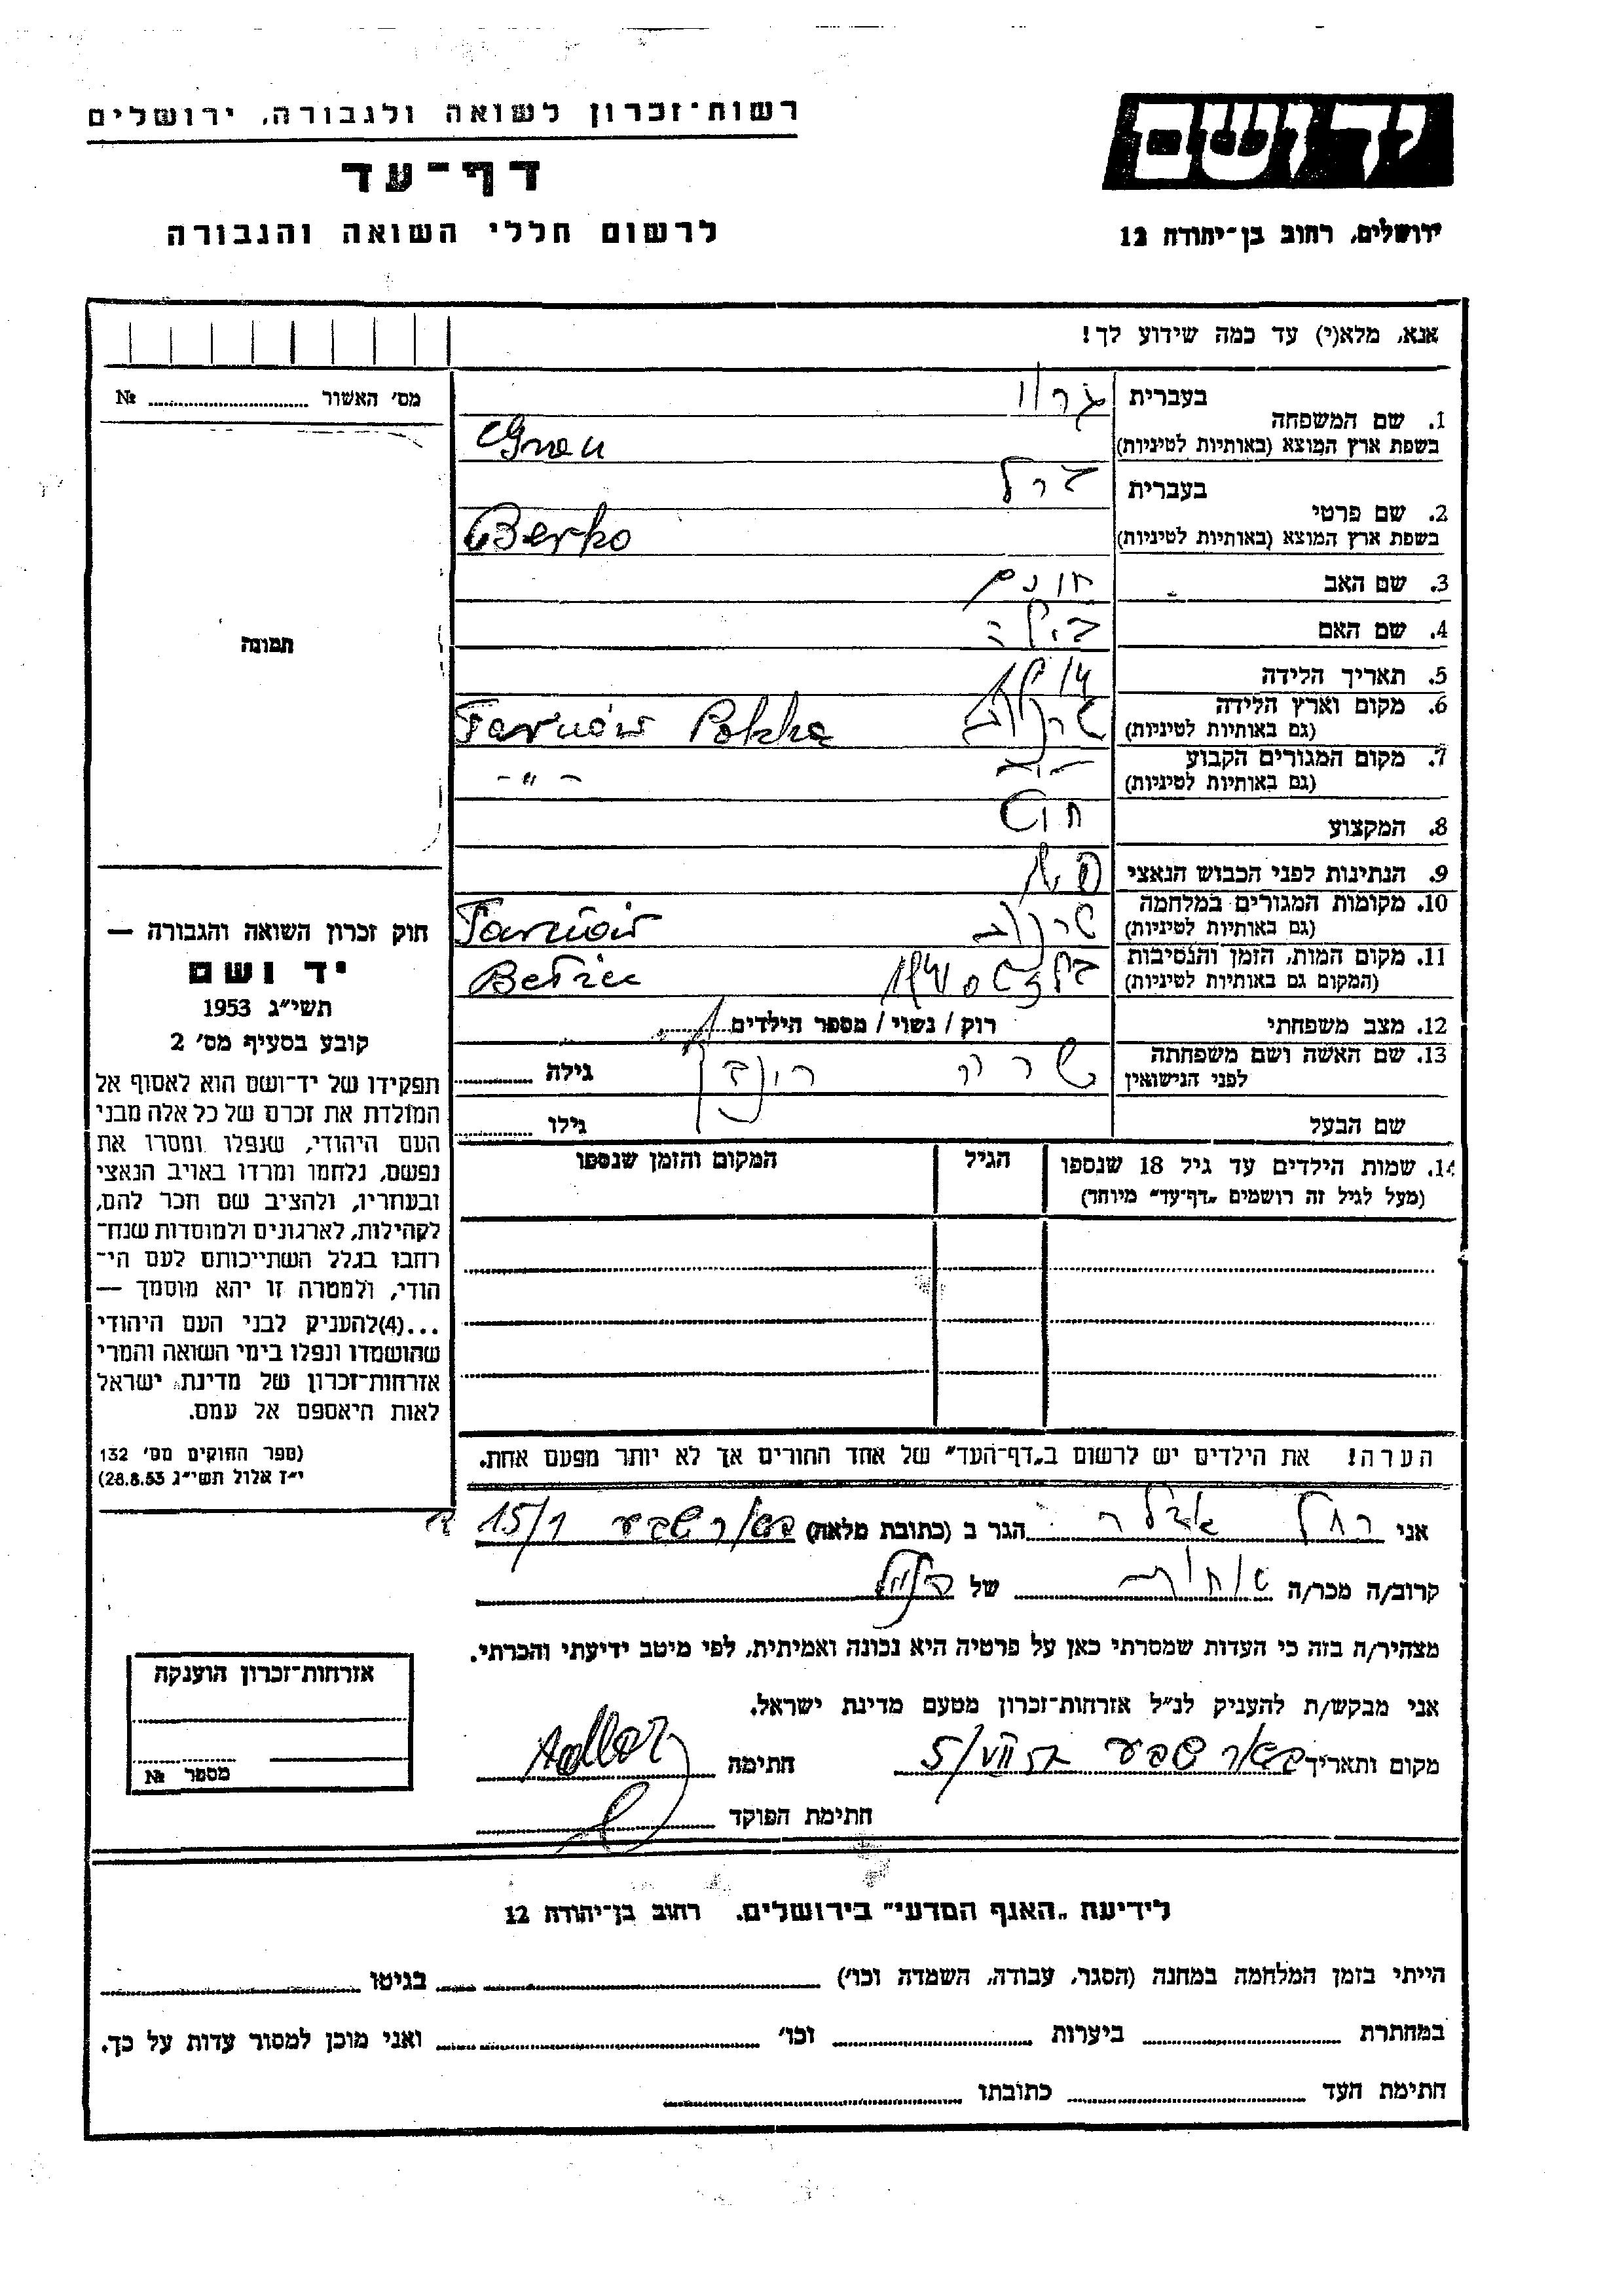 רשות־זכרון לשואה ולגבורה, ירושלים
יד ושם
דף־עד
לרשום חללי השואה והגבורה
ירושלים, רחוב בן־יהודה 12
אנא, מלא(י) עד כמה שידוע לך!
מס' האשור № 
בעברית
1. שם המשפחה
בשפת ארץ המוצא (באותיות לטיניות)
בעברית ברל
2. שם פרטי
בשפת ארץ המוצא (באותיות לטיניות) Berko
3. שם האב
4. שם האם
5. תאריך הלידה
6. מקום וארץ הלידה
(גם באותיות לטיניות) Tarnów Polska
7. מקום המגורים הקבוע
(גם באותיות לטיניות) - " -
8. המקצוע
9. הנתינות לפני הכבוש הנאצי
10. מקומות המגורים במלחמה
(גם באותיות לטיניות) Tarnów
11. מקום המות, הזמן והנסיבות
(המקום גם באותיות לטיניות) Bełżec
12. מצב משפחתי רוק / נשוי / מספר הילדים
13. שם האשה ושם משפחתה
לפני הנישואין גילה
שם הבעל גילו
14. שמות הילדים עד גיל 18 שנספו
(מעל לגיל זה רושמים „דף־עד" מיוחד)
הגיל
המקום והזמן שנספו
הערה! את הילדים יש לרשום ב„דף־העד" של אחד ההורים אך לא יותר מפעם אחת.
תמונה
חוק זכרון השואה והגבורה —
יד ושם
תשי״ג 1953
קובע בסעיף מס' 2
תפקידו של יד־ושם הוא לאסוף אל
המולדת את זכרם של כל אלה מבני
העם היהודי, שנפלו ומסרו את
נפשם, נלחמו ומרדו באויב הנאצי
ובעוזריו, ולהציב שם וזכר להם,
לקהילות, לארגונים ולמוסדות שנח־
רבו בגלל השתייכותם לעם הי־
הודי, ולמטרה זו יהא מוסמך —
...(4)להעניק לבני העם היהודי
שהושמדו ונפלו בימי השואה והמרי
אזרחות־זכרון של מדינת ישראל
לאות היאספם אל עמם.
(ספר החוקים מס' 132
י״ז אלול תשי״ג 28.8.53)
אני רחל אדלר הגר ב (כתובת מלאה) באר שבע 15/1
קרוב/ה מכר/ה של
מצהיר/ה בזה כי העדות שמסרתי כאן על פרטיה היא נכונה ואמיתית, לפי מיטב ידיעתי והכרתי.
אני מבקש/ת להעניק לנ״ל אזרחות־זכרון מטעם מדינת ישראל.
מקום ותאריך באר שבע 5/VII חתימה Adler
חתימת הפוקד
אזרחות־זכרון הוענקה
מספר №
לידיעת „האגף המדעי" בירושלים. רחוב בן־יהודה 12
הייתי בזמן המלחמה במחנה (הסגר, עבודה, השמדה וכו') בגיטו
במחתרת ביערות וכו' ואני מוכן למסור עדות על כך.
חתימת העד כתובתו